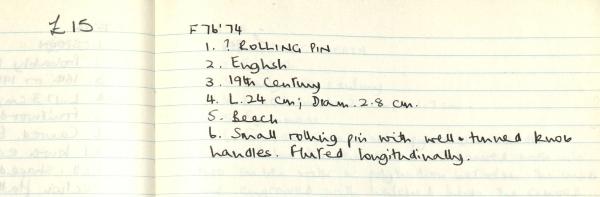 £15
F76'74
1. ? ROLLING PIN
2. English
3. 19th Century
4. L. 24 cm; Diam. 2.8 cm.
5. Beech
6. Small rolling pin with well-turned knob
handles. Fluted longitudinally.